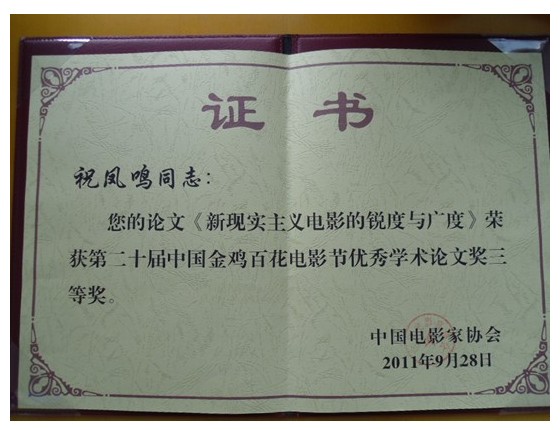 证 书
祝凤鸣同志：
您的论文《新现实主义电影的锐度与广度》荣
获第二十届中国金鸡百花电影节优秀学术论文奖三
等奖。
中国电影家协会
2011年9月28日